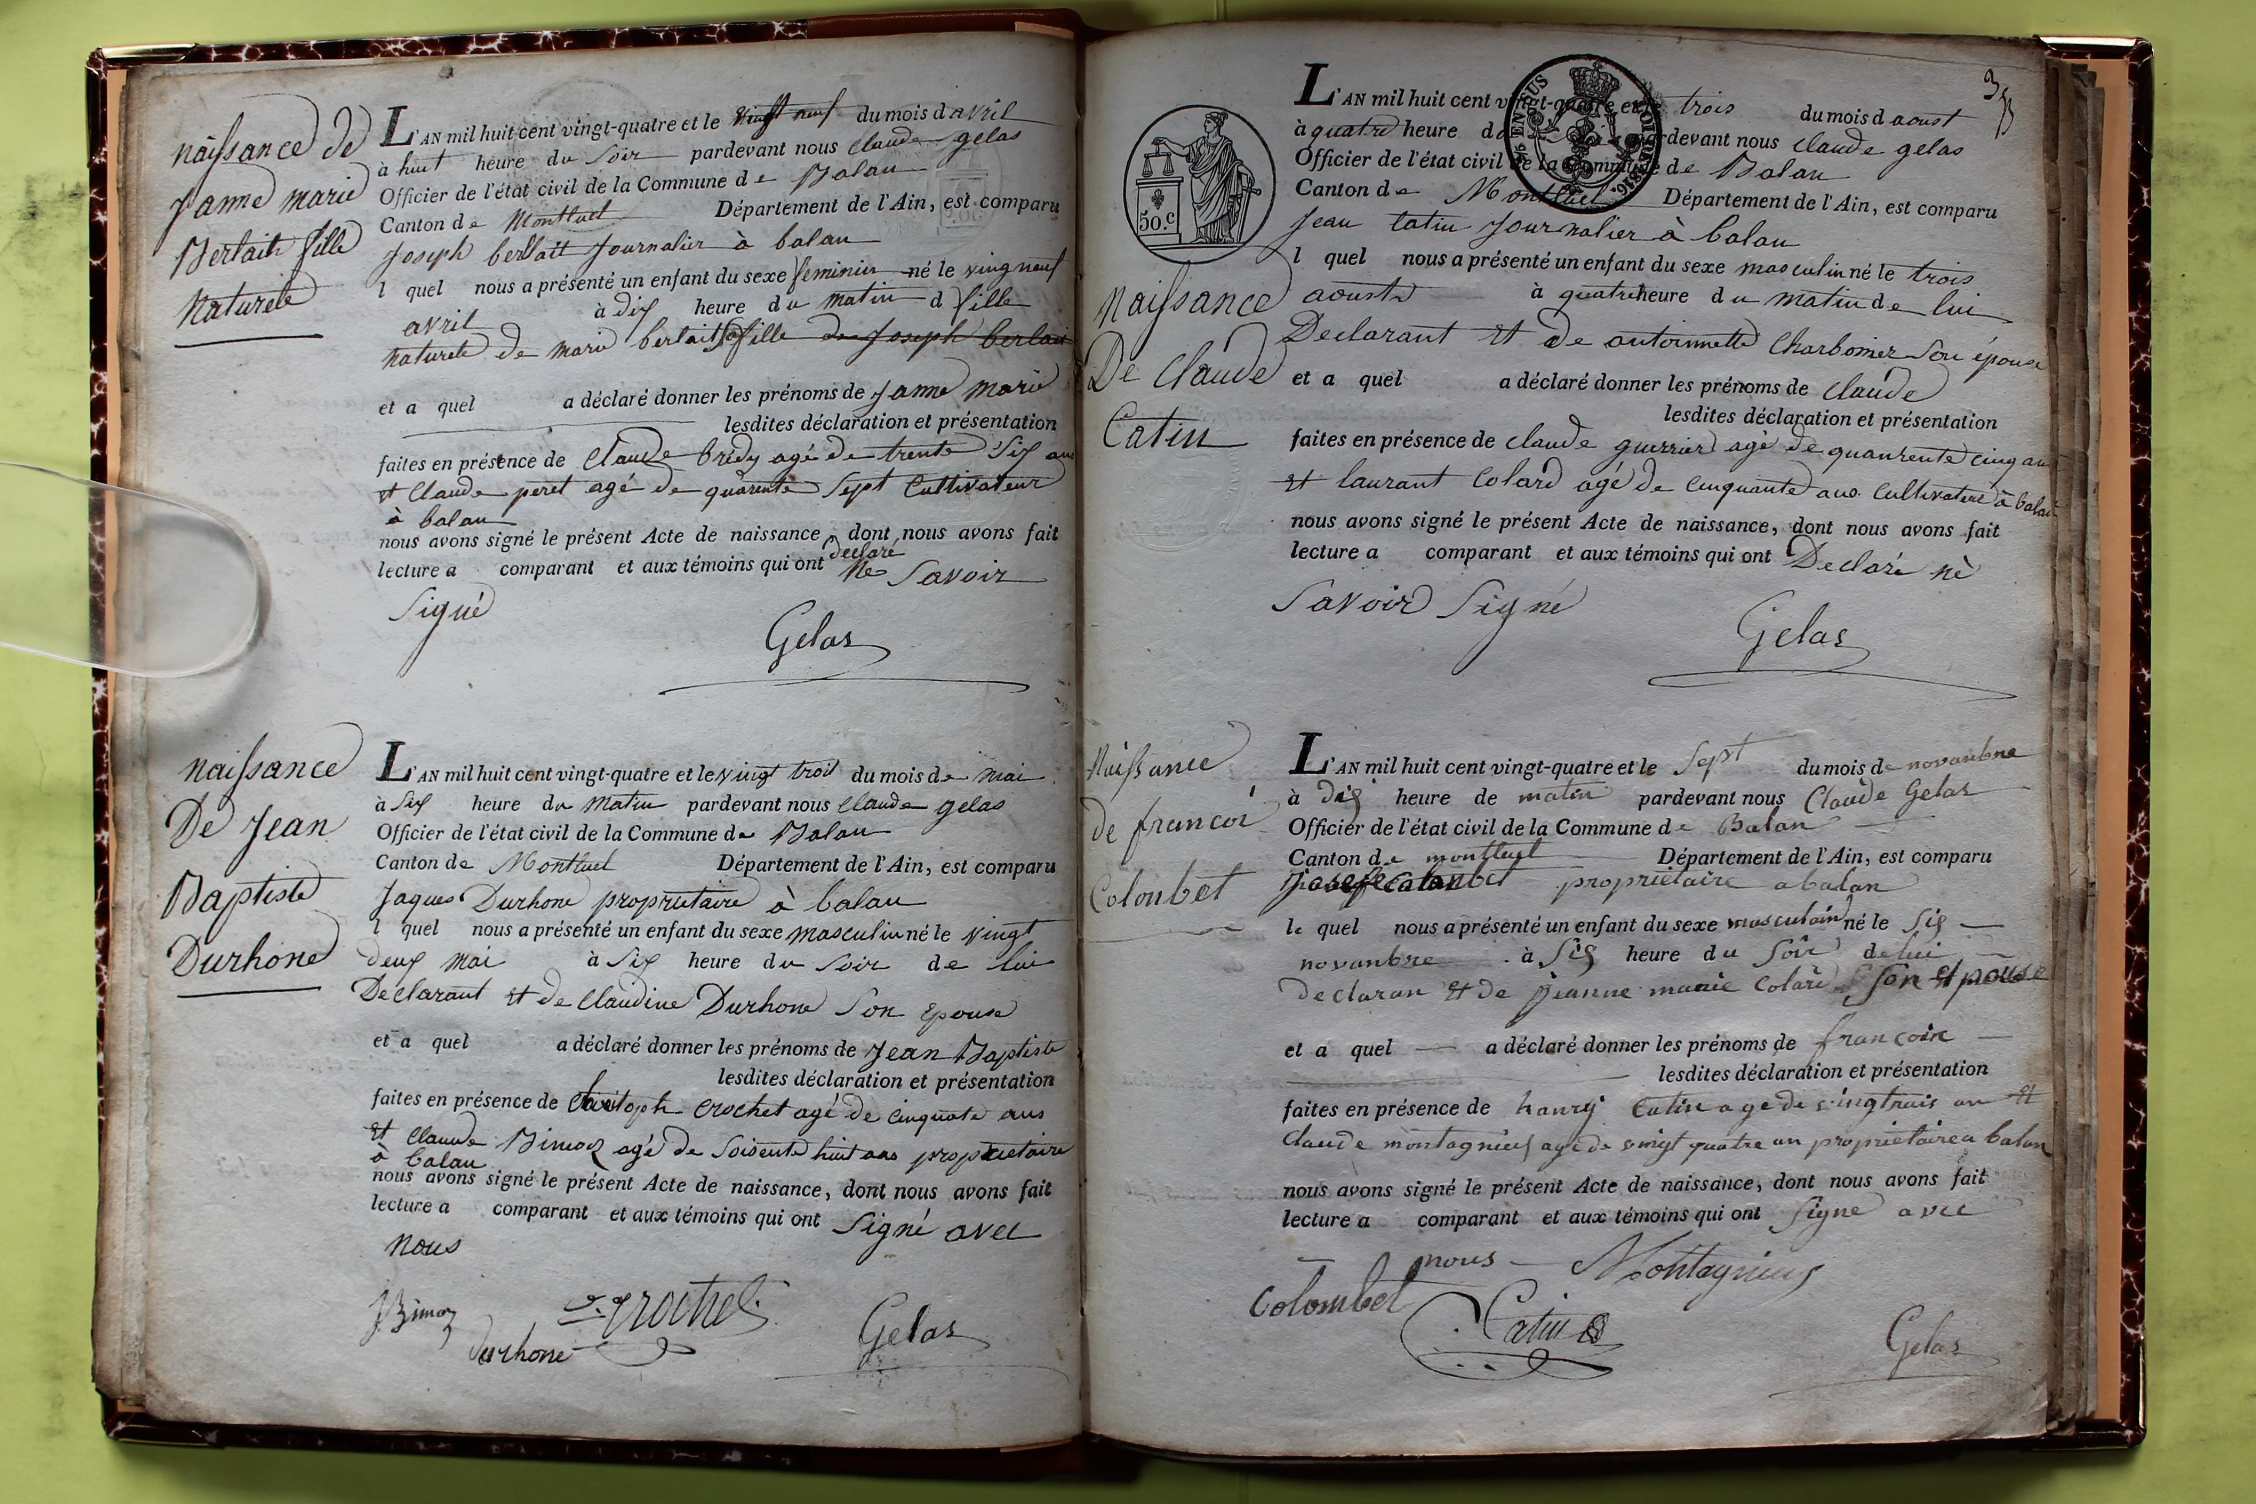 naissance de
Janne marie
Berlait fille
Naturele
L'AN mil huit cent vingt-quatre et le vingt neuf du mois d avril
à huit heure du soir pardevant nous claude gelas
Officier de l'état civil de la Commune de Balan
Canton de Montluel Département de l'Ain, est comparu
Joseph berlait Journalier à balan
l quel nous a présenté un enfant du sexe feminin né le ving neuf
avril à dix heure du matin d fille
naturele de marie berlait fille de Joseph berlait
et a quel a déclaré donner les prénoms de Janne marie
lesdites déclaration et présentation
faites en présence de claude brédy agé de trente six ans
et claude peret agé de quarente sept cultivateur
à balan
nous avons signé le présent Acte de naissance, dont nous avons fait
lecture a comparant et aux témoins qui ont declaré ne savoir
signé
Gelas
naissance
De Jean
Baptiste
Durhone
L'AN mil huit cent vingt-quatre et le vingt trois du mois de mai
à six heure du matin pardevant nous claude gelas
Officier de l'état civil de la Commune de Balan
Canton de Montluel Département de l'Ain, est comparu
Jaques Durhone proprietaire à balan
l quel nous a présenté un enfant du sexe masculin né le vingt
deux mai à six heure du soir de lui
Declarant et de claudine Durhone son epouse
et a quel a déclaré donner les prénoms de Jean Baptiste
lesdites déclaration et présentation
faites en présence de christoph crochet agé de cinquate ans
et claude Bimoz agé de soisente huit ans proprietaire
à balan
nous avons signé le présent Acte de naissance, dont nous avons fait
lecture a comparant et aux témoins qui ont signé avec
nous
Bimoz
crochet
durhone
Gelas
35
50.c
EN SUS
naissance
De claude
Catin
L'AN mil huit cent vingt-quatre et le trois du mois d aoust
à quatre heure du pardevant nous claude gelas
Officier de l'état civil de la Commune de Balan
Canton de Montluel Département de l'Ain, est comparu
Jean catin Journalier à balan
l quel nous a présenté un enfant du sexe masculin né le trois
aoust à quatre heure du matin de lui
Declarant et de antoinnette charbonier son épouse
et a quel a déclaré donner les prénoms de claude
lesdites déclaration et présentation
faites en présence de claude guerrier agé de quanrente cinq ans
et laurant colard agé de cinquante ans cultivateur à balan
nous avons signé le présent Acte de naissance, dont nous avons fait
lecture a comparant et aux témoins qui ont Declaré nè
savoir signé
Gelas
Naissance
de francoi
Colonbet
L'AN mil huit cent vingt-quatre et le sept du mois de novanbre
à dix heure de matin pardevant nous Claude Gelas
Officier de l'état civil de la Commune de Balan
Canton de montluel Département de l'Ain, est comparu
Colonbet proprietaire abalan
le quel nous a présenté un enfant du sexe masculain né le six
novanbre à six heure du soir de lui
declaran et de jeanne marie colard son epouse
et a quel a déclaré donner les prénoms de francoix
lesdites déclaration et présentation
faites en présence de hanry Catin age de vingtrais an et
claude montagnieux age de vingt quatre an proprietaire a balan
nous avons signé le présent Acte de naissance, dont nous avons fait
lecture a comparant et aux témoins qui ont signe avec
nous Montagnieux
colombet
Catin
Gelas